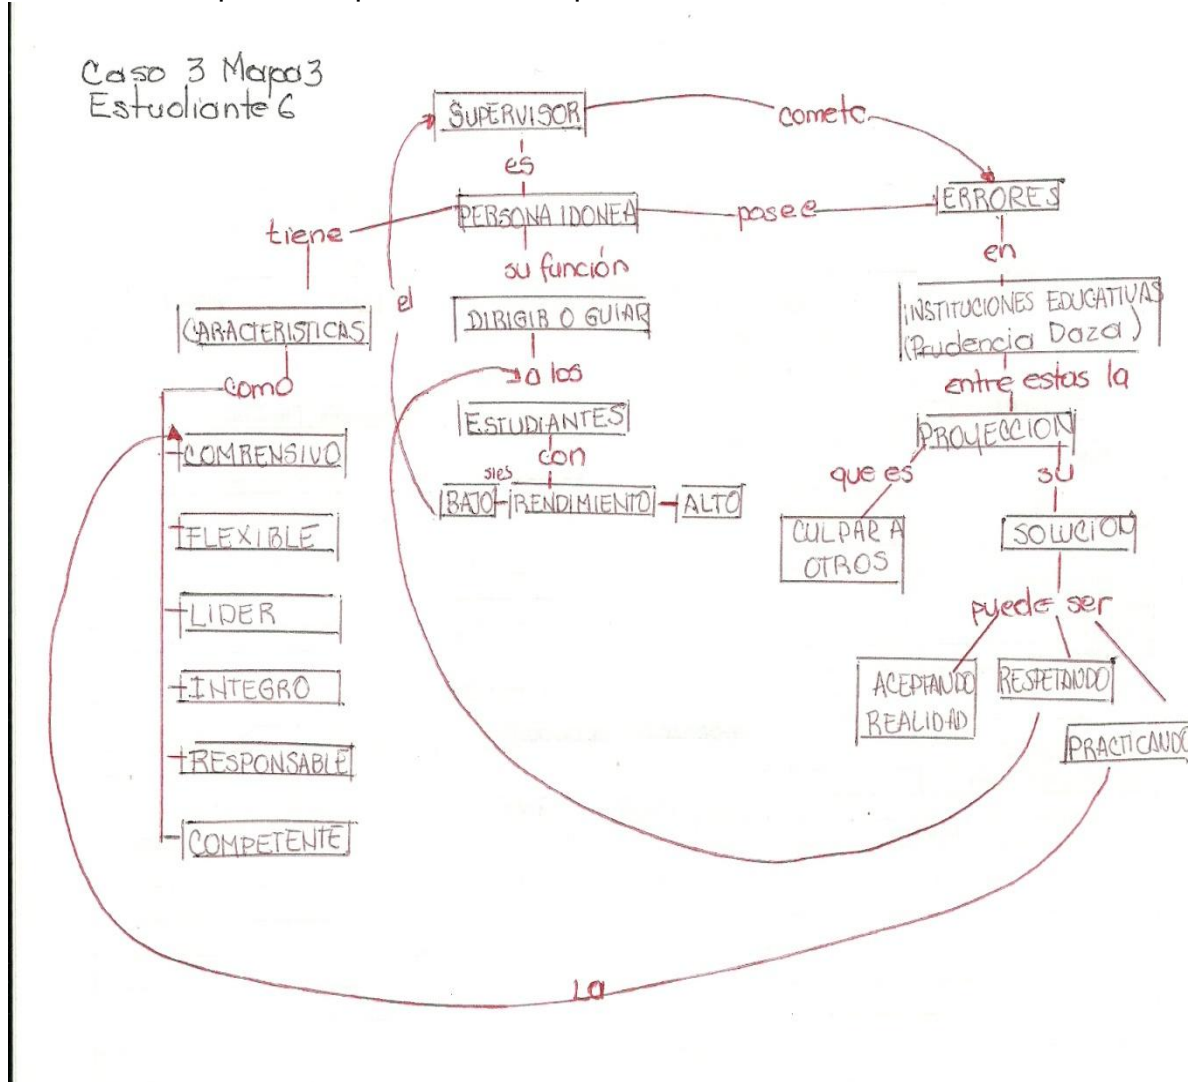 Caso 3 Mapa3
Estudiante 6
SUPERVISOR
comete
es
PERSONA IDONEA
posee
ERRORES
tiene
su función
en
el
CARACTERISTICAS
DIRIGIR O GUIAR
INSTITUCIONES EDUCATIVAS
(Prudencia Daza)
como
a los
entre estas la
COMRENSIVO
ESTUDIANTES
PROYECCION
con
que es
su
sies
BAJO RENDIMIENTO ALTO
FLEXIBLE
CULPAR A
OTROS
SOLUCION
LIDER
puede ser
INTEGRO
ACEPTANDO
REALIDAD
RESPETANDO
RESPONSABLE
PRACTICANDO
COMPETENTE
La